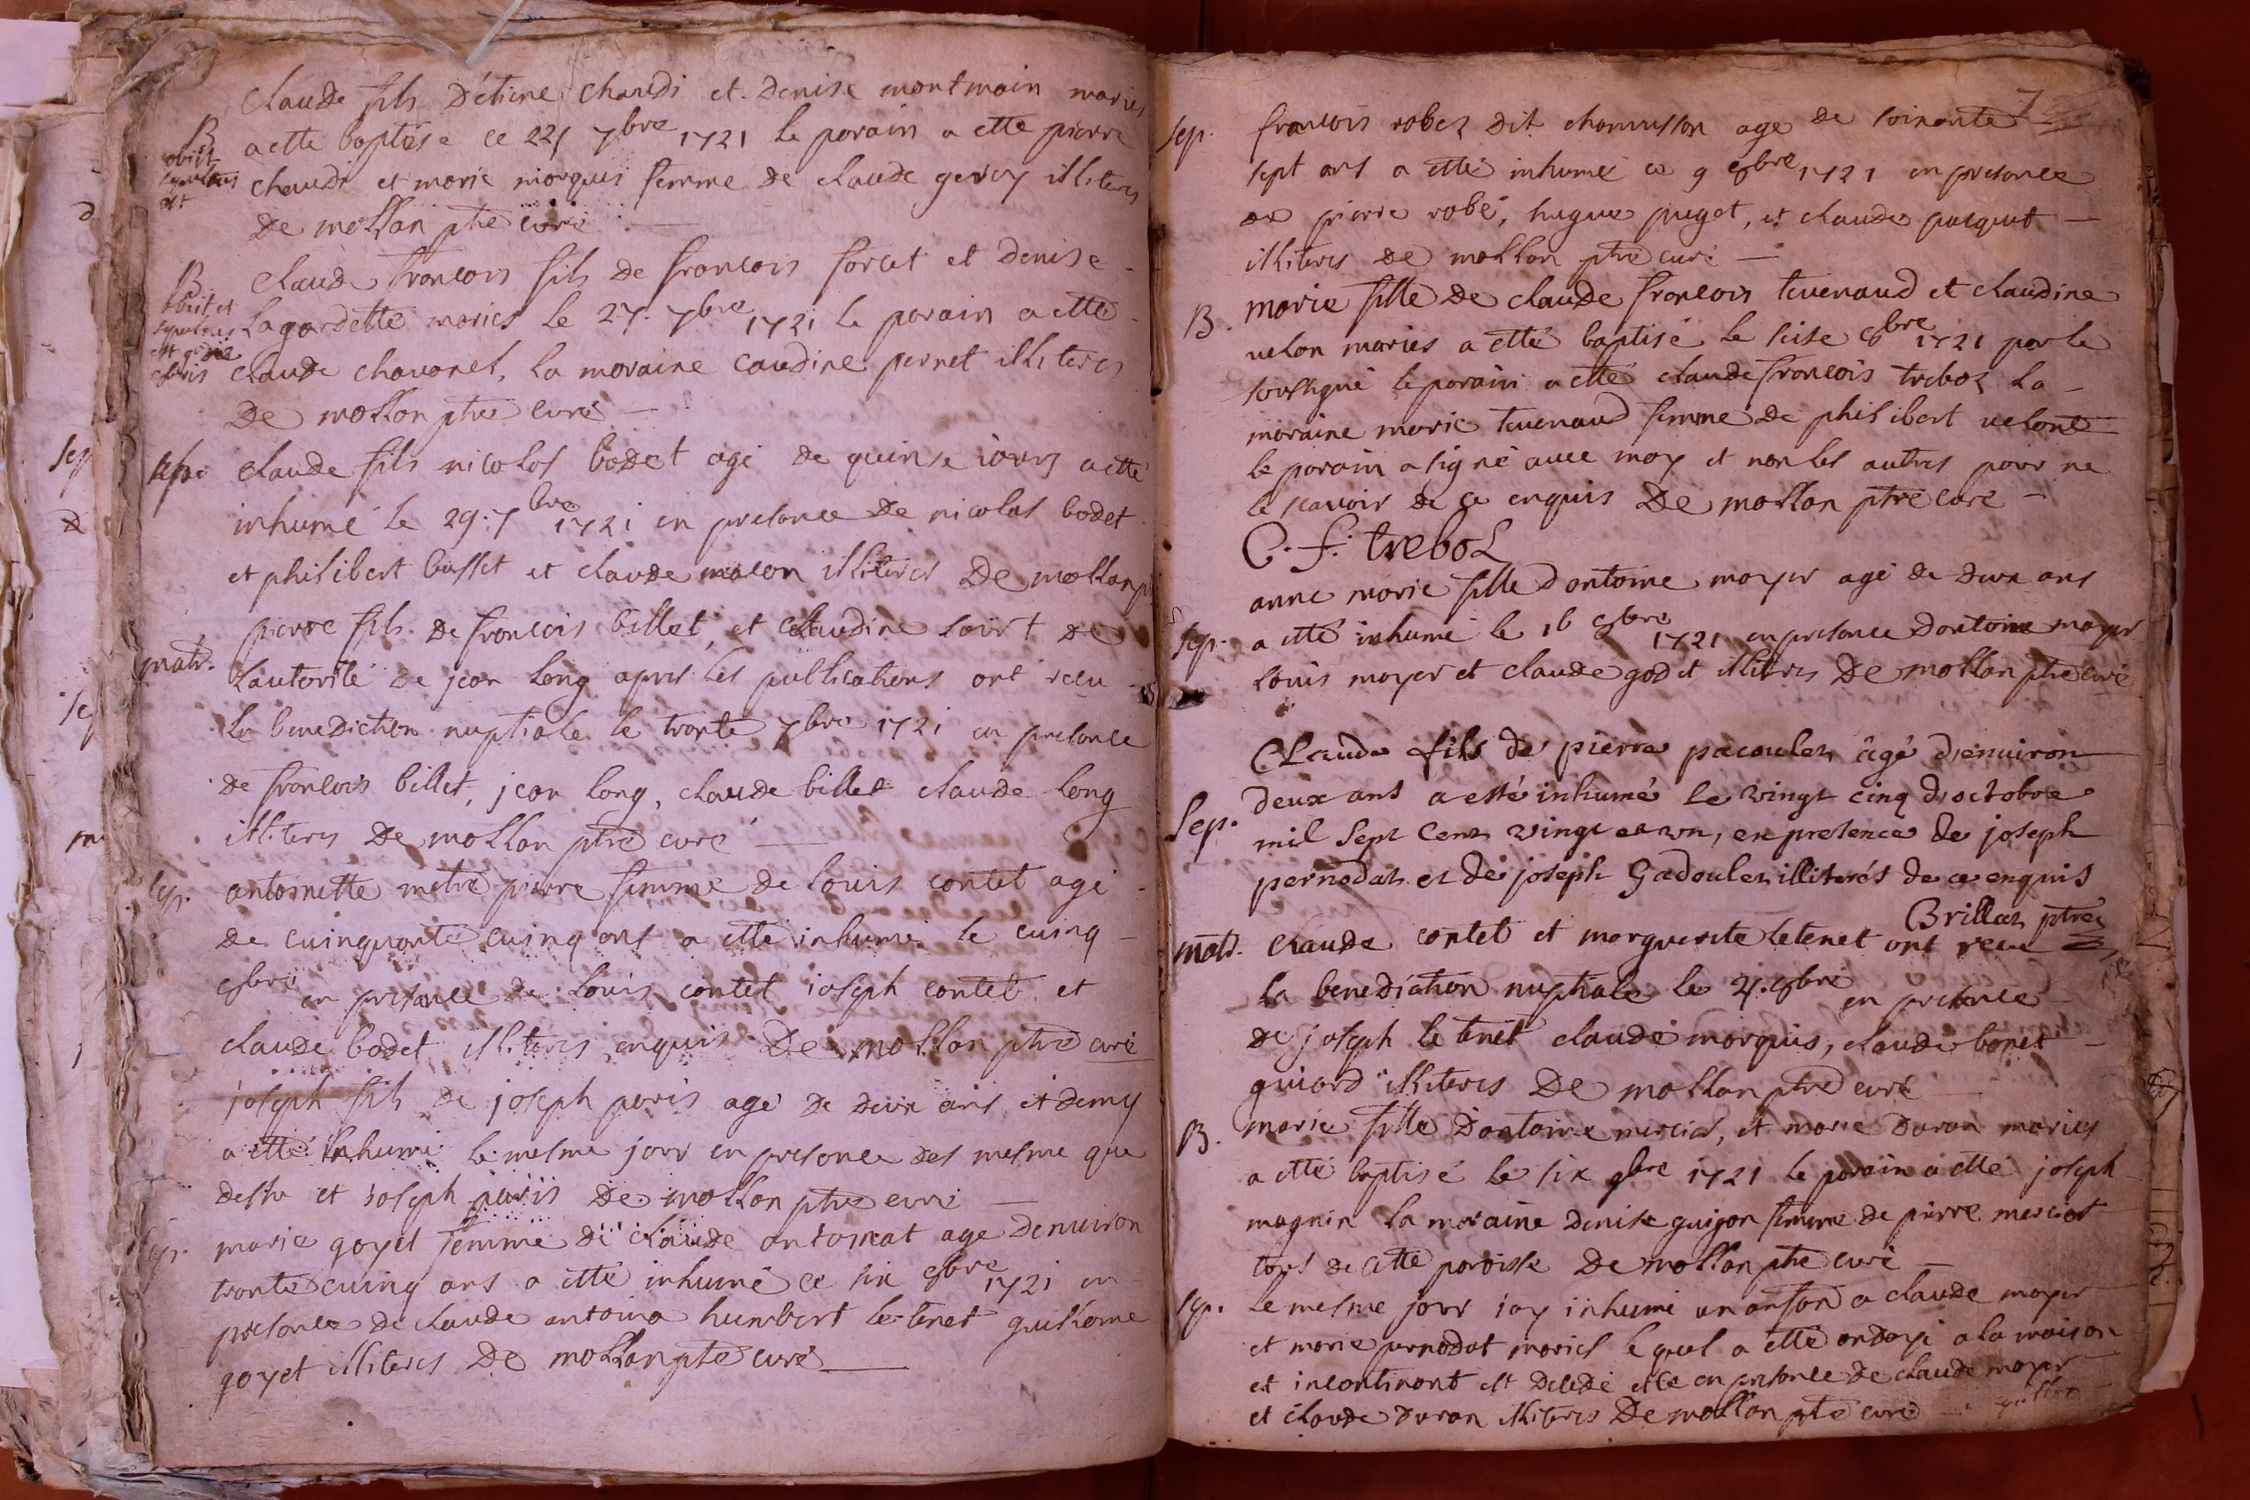 claude fils D'étiene chandi et Denise montmain maries
B
a etté baptisé ce 22 7bre 1721 le parain a etté pierre
obiit
sepultus
est
chandi et marie morques femme de claude gercy illiteres
De mollan ptre curé
B.
claude francois fils de francois forest et Denise
obiit et
sepultus
est
Lagardette maries le 27. 7bre 1721 le parain a etté
claude chavanel, la maraine caudine pernet illiteres
De mollan ptre curé
sep.
claude fils nicolas bodet agé de quinse iours a etté
inhumé le 29. 7bre 1721 en presance de nicolas bodet
et philibert busset et claude macon illiteres De mollan
pierre fils de francois billet, et claudine sourt de
matr.
Lautorité de jean long apres les publications ont recu
la benediction nuptiale le trante 7bre 1721 en presance
de francois billet, jean long, claude billet claude long
illiteres De mollan ptre curé
sep.
antoinette metre pierre femme de louis contet agé
de cuinquante cuinq ans a etté inhumé le cuinq
8bre en presance de louis contet ioseph contet et
claude bodet illiteres enquis De mollan ptre curé
joseph fils de joseph paris agé de deux ans et demy
a etté inhumé le mesme jour en presance des mesme que
dessu et ioseph paris De mollan ptre curé
sep.
marie goyet femme de claude antoinat age denuiron
trante cuinq ans a etté inhumé ce six 8bre 1721 en
presance de claude antoina humbert letenet guilhome
goyet illiteres De mollan ptre curé
7
sep.
francois robez dit chamusson age de soixante
sept ans a etté inhumé ce 9 8bre 1721 en presance
de pierre robé, hugue puget, et claude paquet
illiteres de mollan ptre curé
B.
marie fille de claude francois tevenaud et claudine
velon maries a etté baptisé le seise 8bre 1721 par le
soussigné le parain a etté claude francois treboz la
maraine marie tevenaud femme de philibert velont
le parain a signé avec moy et non les autres pour ne
le scavoir de ce enquis De mollan ptre curé
C. f. treboz
anne marie fille d'antoine mayer agé de deux ans
sep.
a etté inhumé le 16 8bre 1721 en presance d'antoine mayer
louis mayer et claude godet illiteres De mollan ptre curé
Claude fils de pierre pacoulez âgé d'enuiron
Sep.
deux ans a esté inhumé le vingt cinq d'octobre
mil sept cent vingt et vn, en presence de joseph
pernodat et de joseph Gadoulez illiterés de ce enquis
Brillat ptre
matr.
claude contet et marguerite letenet ont recu
la benediction nuptiale le 4. 9bre en presance
de joseph le tenet claude marquis, claude bonet
guiard illiteres De mollan ptre curé
B.
marie fille d'antoine mercier, et marie duran maries
a etté baptisé le six 9bre 1721 le parain a etté joseph
magnin la maraine denise guigon femme de pierre merciat
tous de cette paroisse De mollan ptre curé
sep.
Le mesme jour iay inhumé un anfan a claude mayer
et marie pernodat maries lequel a etté ondoyé a la maison
et incontinant est decedé et ce en presance de claude mayer
et claude duran illiteres De mollan ptre curé